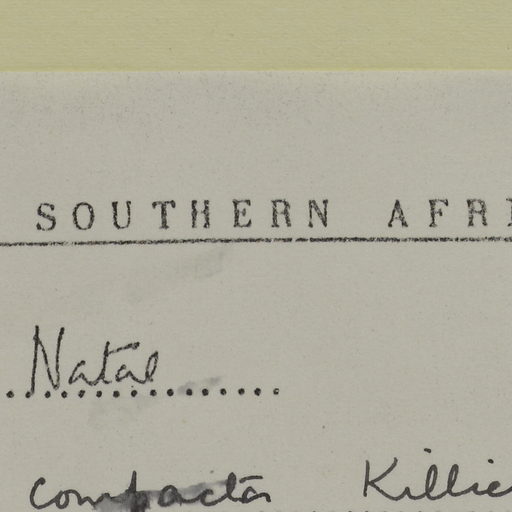 SOUTHERN AFRI
Natal
compacta Killic